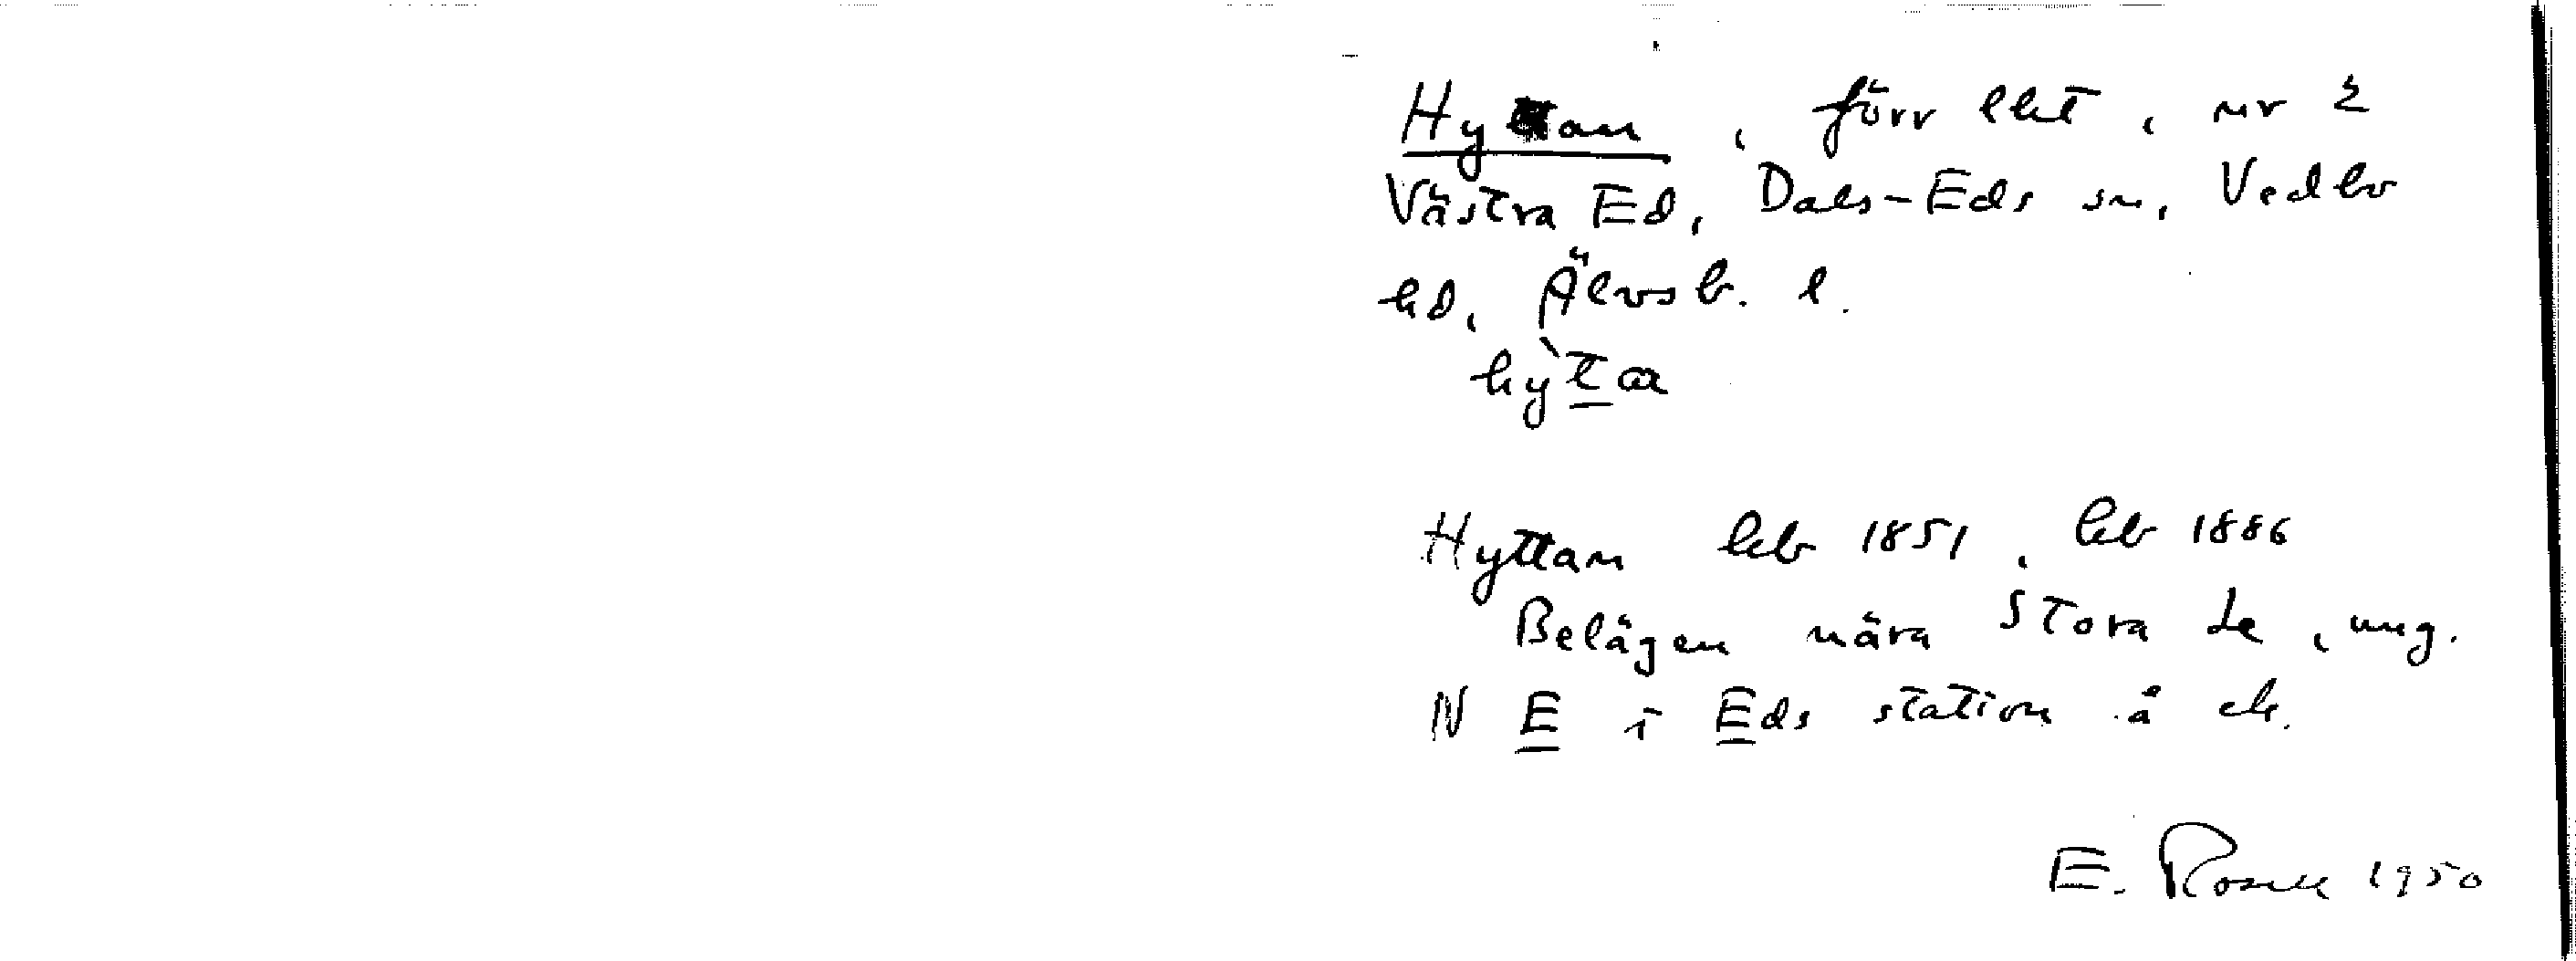 Hyttan, förr lht, nr 2
Västra Ed, Dals-Eds sn, Vedbo
hd, Älvsb. l.
hỳ̖ta
Hyttan hfb 1851, hfb 1886
Belägen nära Stora Le, ung.
N E i Eds station å ek.
E. Rosell 1950